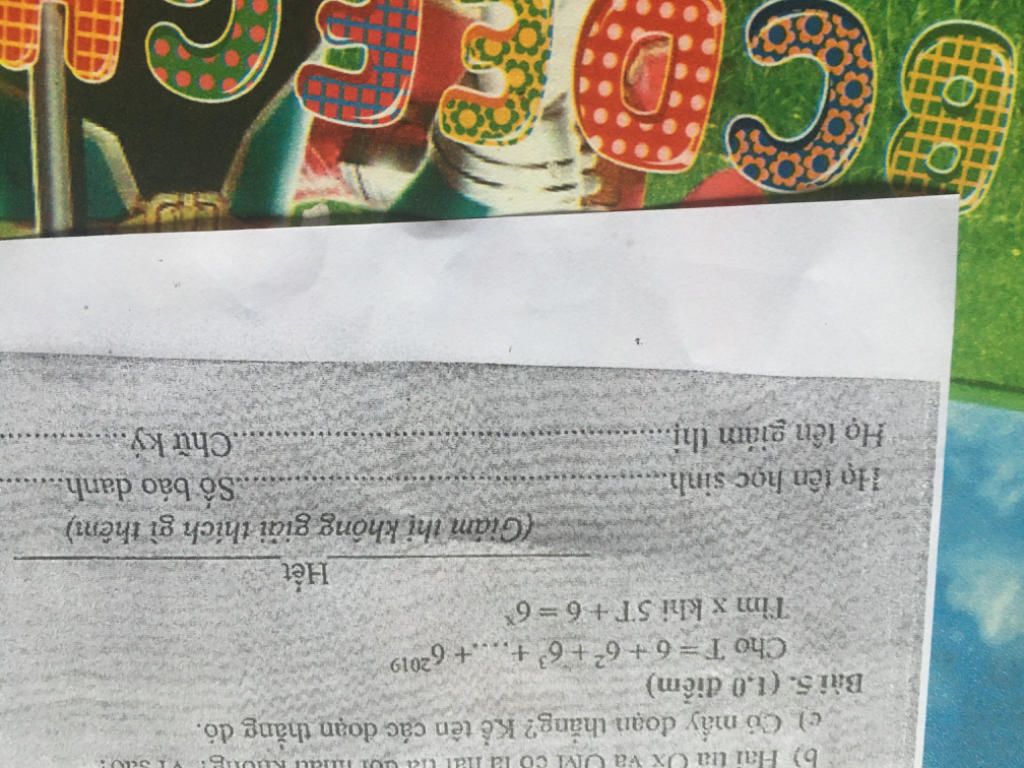 b) Hai tia Ox và OM có là hai tia đối nhau không? Vì sao?
c) Có mấy đoạn thẳng? Kể tên các đoạn thẳng đó.
Bài 5. (1.0 điểm)
Cho T = 6 + 6² + 6³ +.....+ 6²⁰¹⁹
Tìm x khi 5T + 6 = 6ˣ
Hết
(Giám thị không giải thích gì thêm)
Họ tên học sinh..............................Số báo danh.......
Họ tên giám thị..............................Chữ ký..............
B C D E Ê G